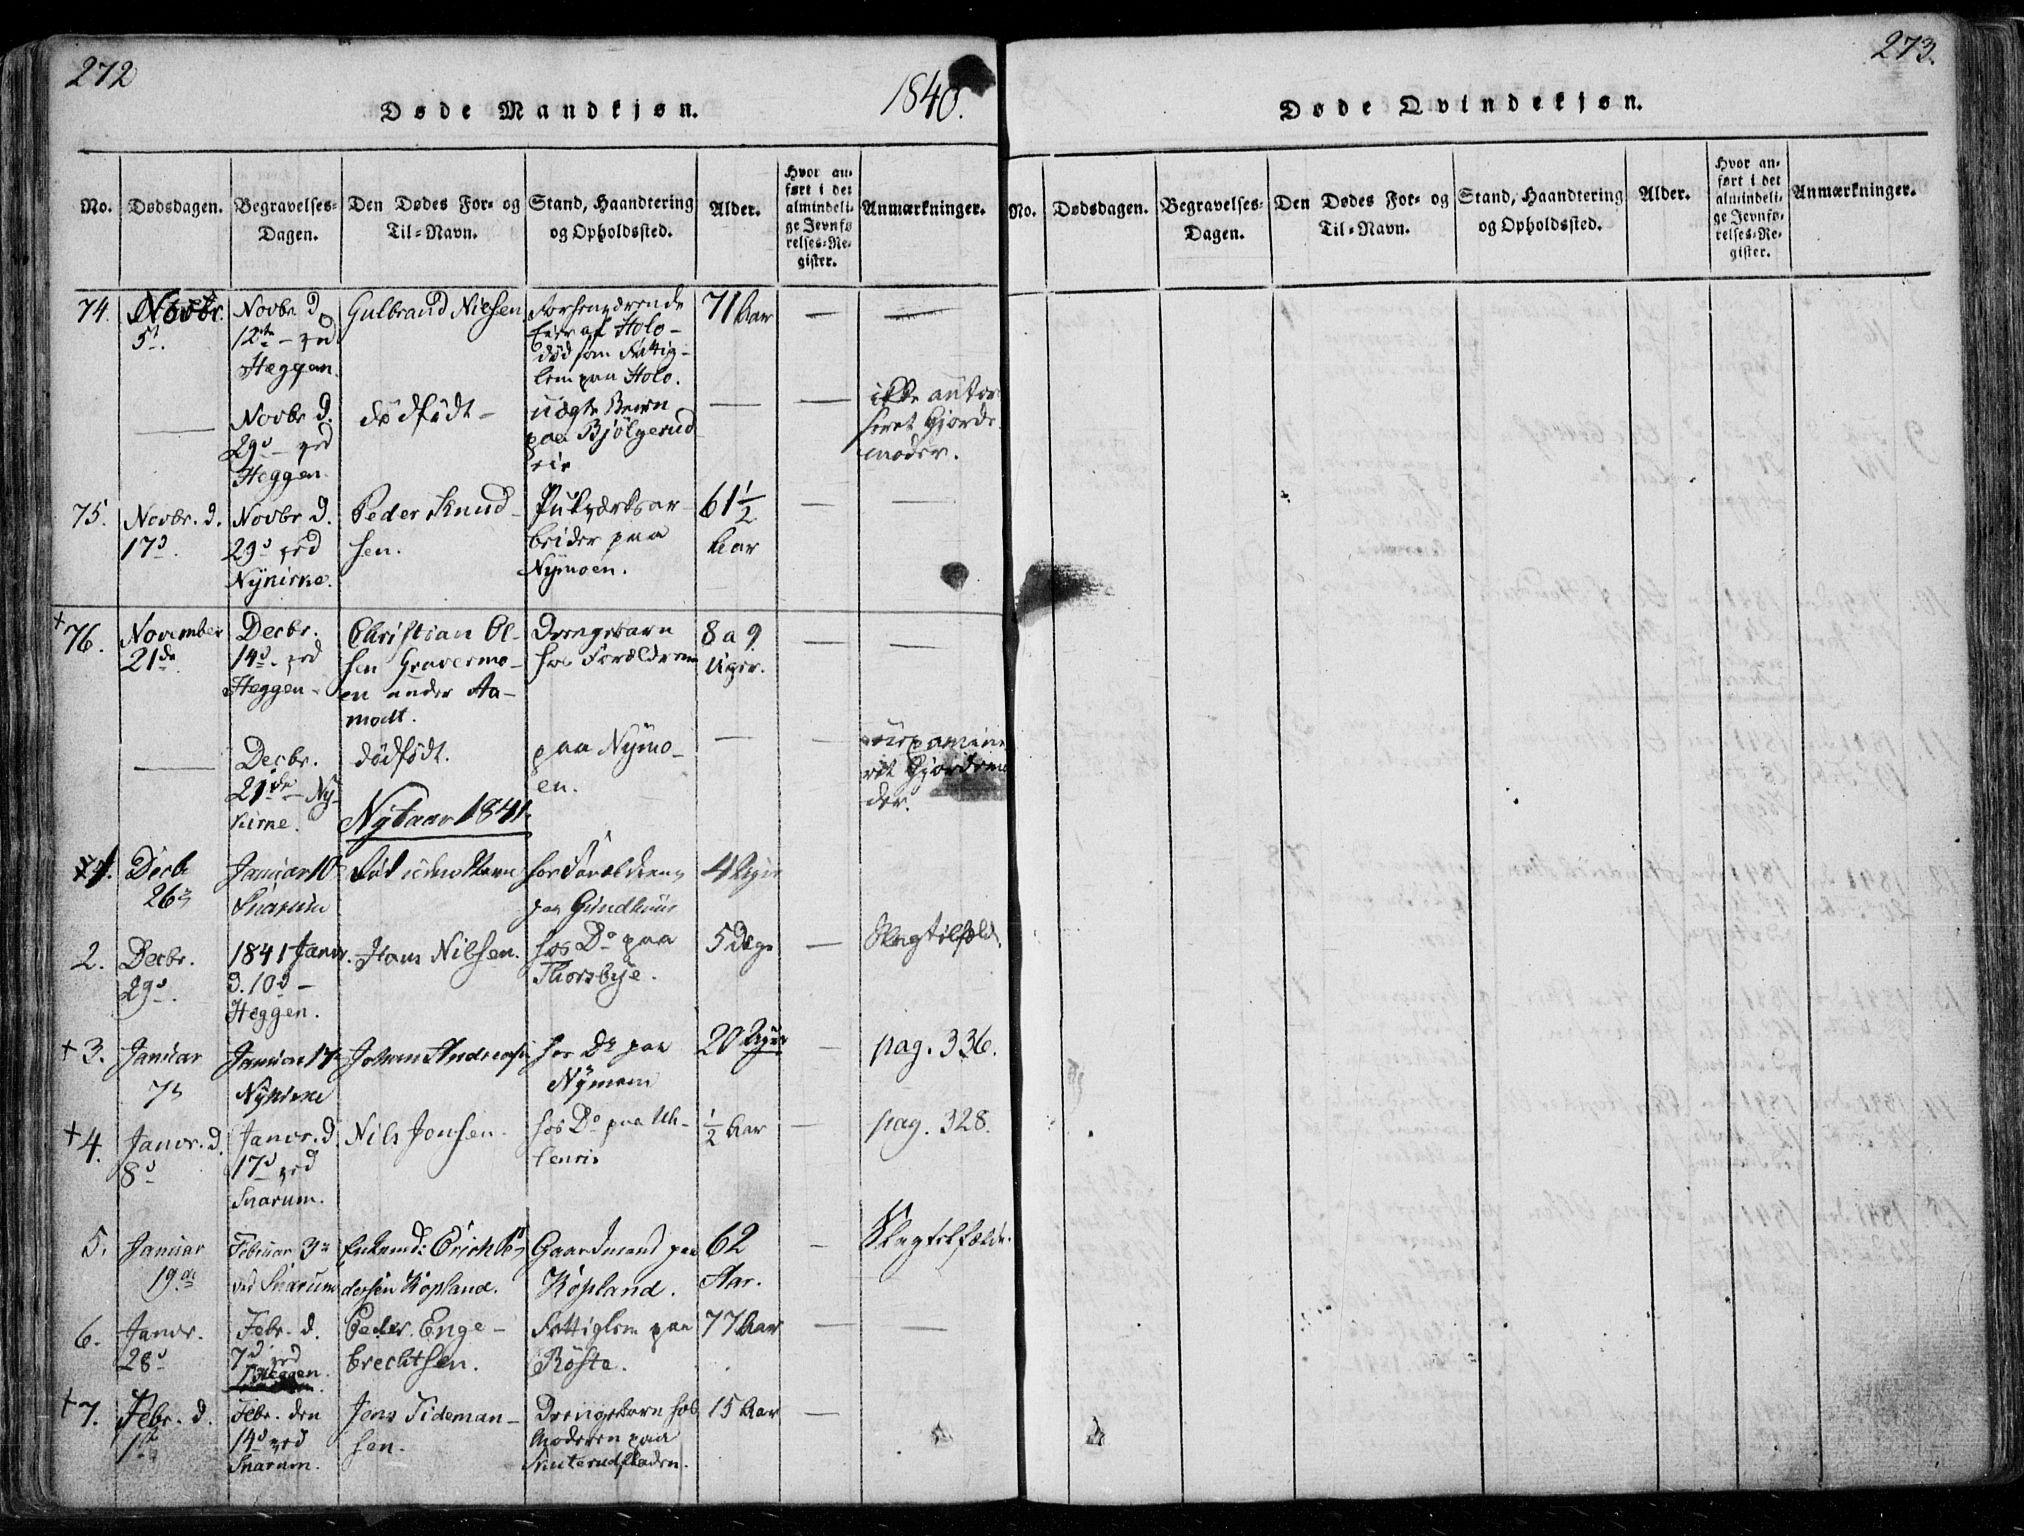 272
1840.
Døde Mandkjøn.
No.
Dødsdagen.
Begravelses-
Dagen.
Den Dødes For- og
Til-Navn.
Stand, Haandtering
og Opholdssted.
Alder.
Hvor an-
ført i det
almindeli-
ge Jevnfø-
relses-Re-
gister.
Anmærkninger.
74.
Novbr.
5t.
Novbr. d.
12te ved
Heggen.
Gulbrand Nielsen.
Forhenværende
Eier af Holo-
død som Fattig-
lem paa Holo.
71 Aar
Novbr. d.
29d ved
Heggen.
dødfødt
uægte Barn
paa Bjölgerud
eie
ikke autori
seret Gjorde
moder.
75.
Novbr. d.
17d.
Novbr d.
29d ved
Nykirke.
Peder Knud-
sen.
Pukværksar-
beider paa
Nymoen.
61½
Aar
+
76.
November
21de
Decbr.
14d. ved
Heggen
Christian Ol-
sen Gravermo-
en under Aa-
modt.
Drengebarn
hos Forældrene
8 a 9
Uger.
Decbr.
21de Ny-
kirke.
dødfødt.
paa Nymo-
en.
uexamine
ret Gjordemo
der.
Nytaar 1841.
1.
Decbr
26de
Januar 10de
Snarum
hos Forældrene
paa Gundhuus
4 Uger
2.
Decbr.
29d.
1841 Janr.
d. 10d
Heggen.
Hans Nilsen.
hos Do paa
Thorsbye.
5 Dage
Slagtilfælde.
+ 3.
Januar
7de
Januar 17de
Nykirke
Johan Andreas
hos Do paa
Nymoen
20 Uger
pag. 336.
+ 4.
Janvr. d.
8d
Janvr. d.
17d ved
Snarum.
Nils Jonsen.
hos Do paa Uh-
lenris
½ Aar
pag. 328.
5.
Januar
19de
Februar 3de
ved Snarum
Enkemd: Erich Pe-
dersen Kopland.
Gaardmand paa
Kopland.
62
Aar.
Slagtilfælde.
6.
Janvr.
28d
Febr. d.
7d ved
Heggen.
Peder Enge-
brechtsen.
Fattiglem paa
Röste.
77 Aar
+ 7.
Febr. d.
1ste
Febr. den
14d ved
Snarum.
Jens Tideman-
sen.
Drengebarn hos
Moderen paa
Snuterudfladen.
15 Aar
273.
Døde Qvindekjøn.
No.
Dødsdagen.
Begravelses-
Dagen.
Den Dødes For- og
Til-Navn.
Stand, Haandtering
og Opholdssted.
Alder.
Hvor an-
ført i det
almindeli-
ge Jevnfø-
relses-Re-
gister.
Anmærkninger.